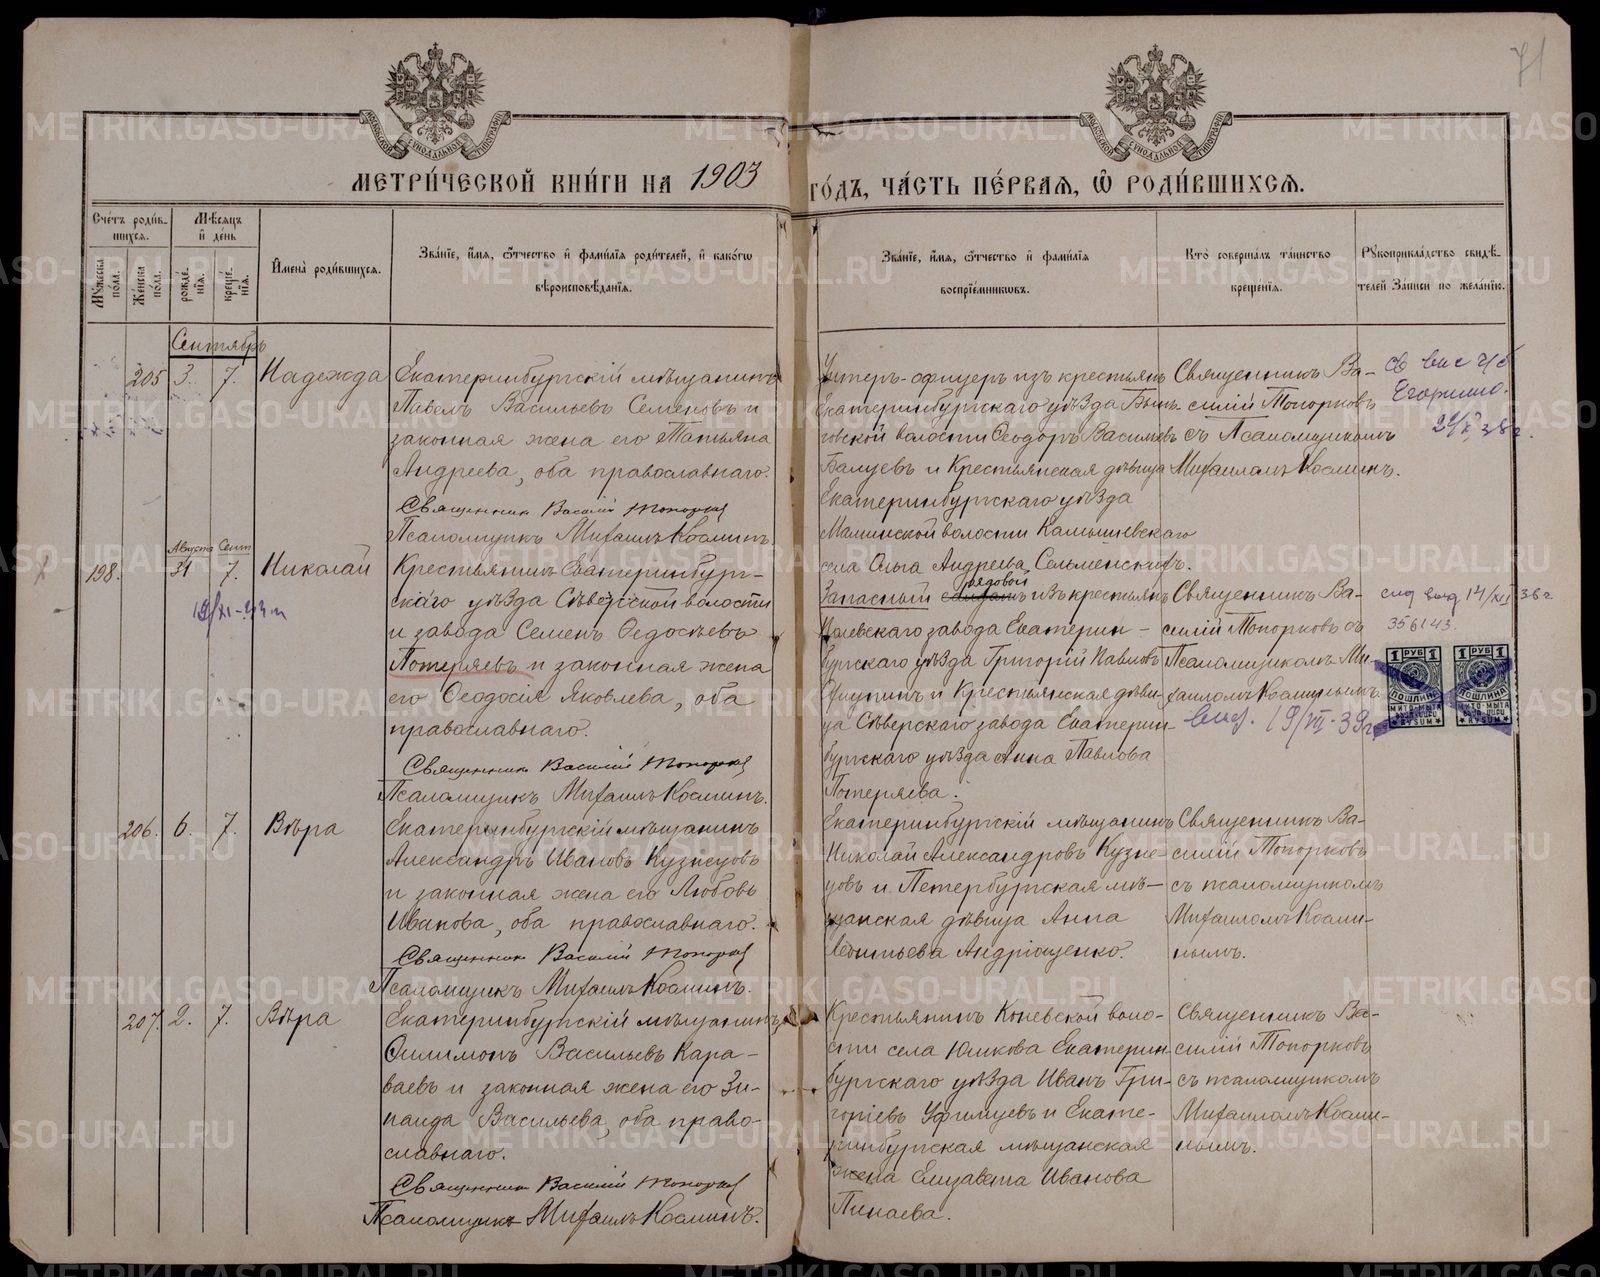 71
МЕТРИ́ЧЕСКОЙ КНИ́ГИ НА 1903 ГО́ДЪ, ЧА́СТЬ ПЕ́РВАЯ, Ѡ РОДИ́ВШИХСЯ.
Счетъ роди́вшихся.
Му́жеска по́ла.
Же́нска по́ла.
Мѣсяцъ и день
рожде́нія.
креще́нія.
Имена̀ роди́вшихся.
Зва́ніе, и́мя, ѻ́тчество и фами́лія роди́телей, и како́гѡ
вѣроисповѣ́данія.
Зва́ніе, и́мя, ѻ́тчество и фами́лія
воспріе́мниковъ.
Кто̀ соверша́лъ та́инство
креще́нія.
Рукоприкла́дство свидѣ́-
телей за́писи по жела́нію.
Сентябрь
205 3. 7. Надежда
Екатеринбургскій мѣщанинъ
Павелъ Васильевъ Семеновъ и
законная жена его Татьяна
Андреева, оба православнаго.
Священник Василій Топорков
Псаломщикъ Михаилъ Косминъ.
Унтеръ-офицеръ изъ крестьянъ
Екатеринбургскаго уѣзда
волости Ѳеодоръ Васильевъ
Балуевъ и Крестьянская дѣвица
Екатеринбургскаго уѣзда
Маминской волости Камышевскаго
села Ольга Андреева
Священникъ Ва-
силій Топорковъ
съ Псаломщикомъ
Михаиломъ Косминъ.
Августа Сент.
198. 31 7. Николай
Крестьянинъ Екатеринбург-
скаго уѣзда Сѣверской волости
и завода Семенъ Ѳедосѣевъ
Потеряевъ и законная жена
его Ѳеодосія Яковлева, оба
православнаго.
Священник Василій Топорков
Псаломщикъ Михаилъ Косминъ.
Запасный рядовой изъ крестьянъ
Полевскаго завода Екатерин-
бургскаго уѣзда Григорій Павловъ
и Крестьянская дѣви-
ца Сѣверскаго завода Екатерин-
бургскаго уѣзда Анна Павлова
Потеряева.
Священникъ Ва-
силій Топорковъ съ
Псаломщикомъ Ми-
хаиломъ Косминымъ.
выд. 19/VII-39г
14/XII 38г
356143.
1 РУБ 1
ПОШЛИНА
МИТО·МЫТА
RYSUM
1 РУБ 1
ПОШЛИНА
МИТО·МЫТА
RYSUM
206. 6. 7. Вѣра
Екатеринбургскій мѣщанинъ
Александръ Ивановъ Кузнецовъ
и законная жена его Любовь
Иванова, оба православнаго.
Священник Василій Топорков
Псаломщикъ Михаилъ Косминъ.
Екатеринбургскій мѣщанинъ
Николай Александровъ Кузне-
цовъ и Петербургская мѣ-
щанская дѣвица Анна
Леонтьева Андріющенко.
Священникъ Ва-
силій Топорковъ
съ псаломщикомъ
Михаиломъ Косми-
нымъ.
207. 2. 7. Вѣра
Екатеринбургскій мѣщанинъ
Филимонъ Васильевъ Кара-
ваевъ и законная жена его Зи-
наида Васильева, оба право-
славнаго.
Священник Василій Топорков
Псаломщикъ Михаилъ Косминъ.
Крестьянинъ Коневской воло-
сти села Юшкова Екатерин-
бургскаго уѣзда Иванъ Гри-
горіевъ Уфимцевъ и Екате-
ринбургская мѣщанская
жена Елизавета Иванова
Пинаева.
Священникъ Ва-
силій Топорковъ
съ псаломщикомъ
Михаиломъ Косми-
нымъ.
METRIKI.GASO-URAL.RU